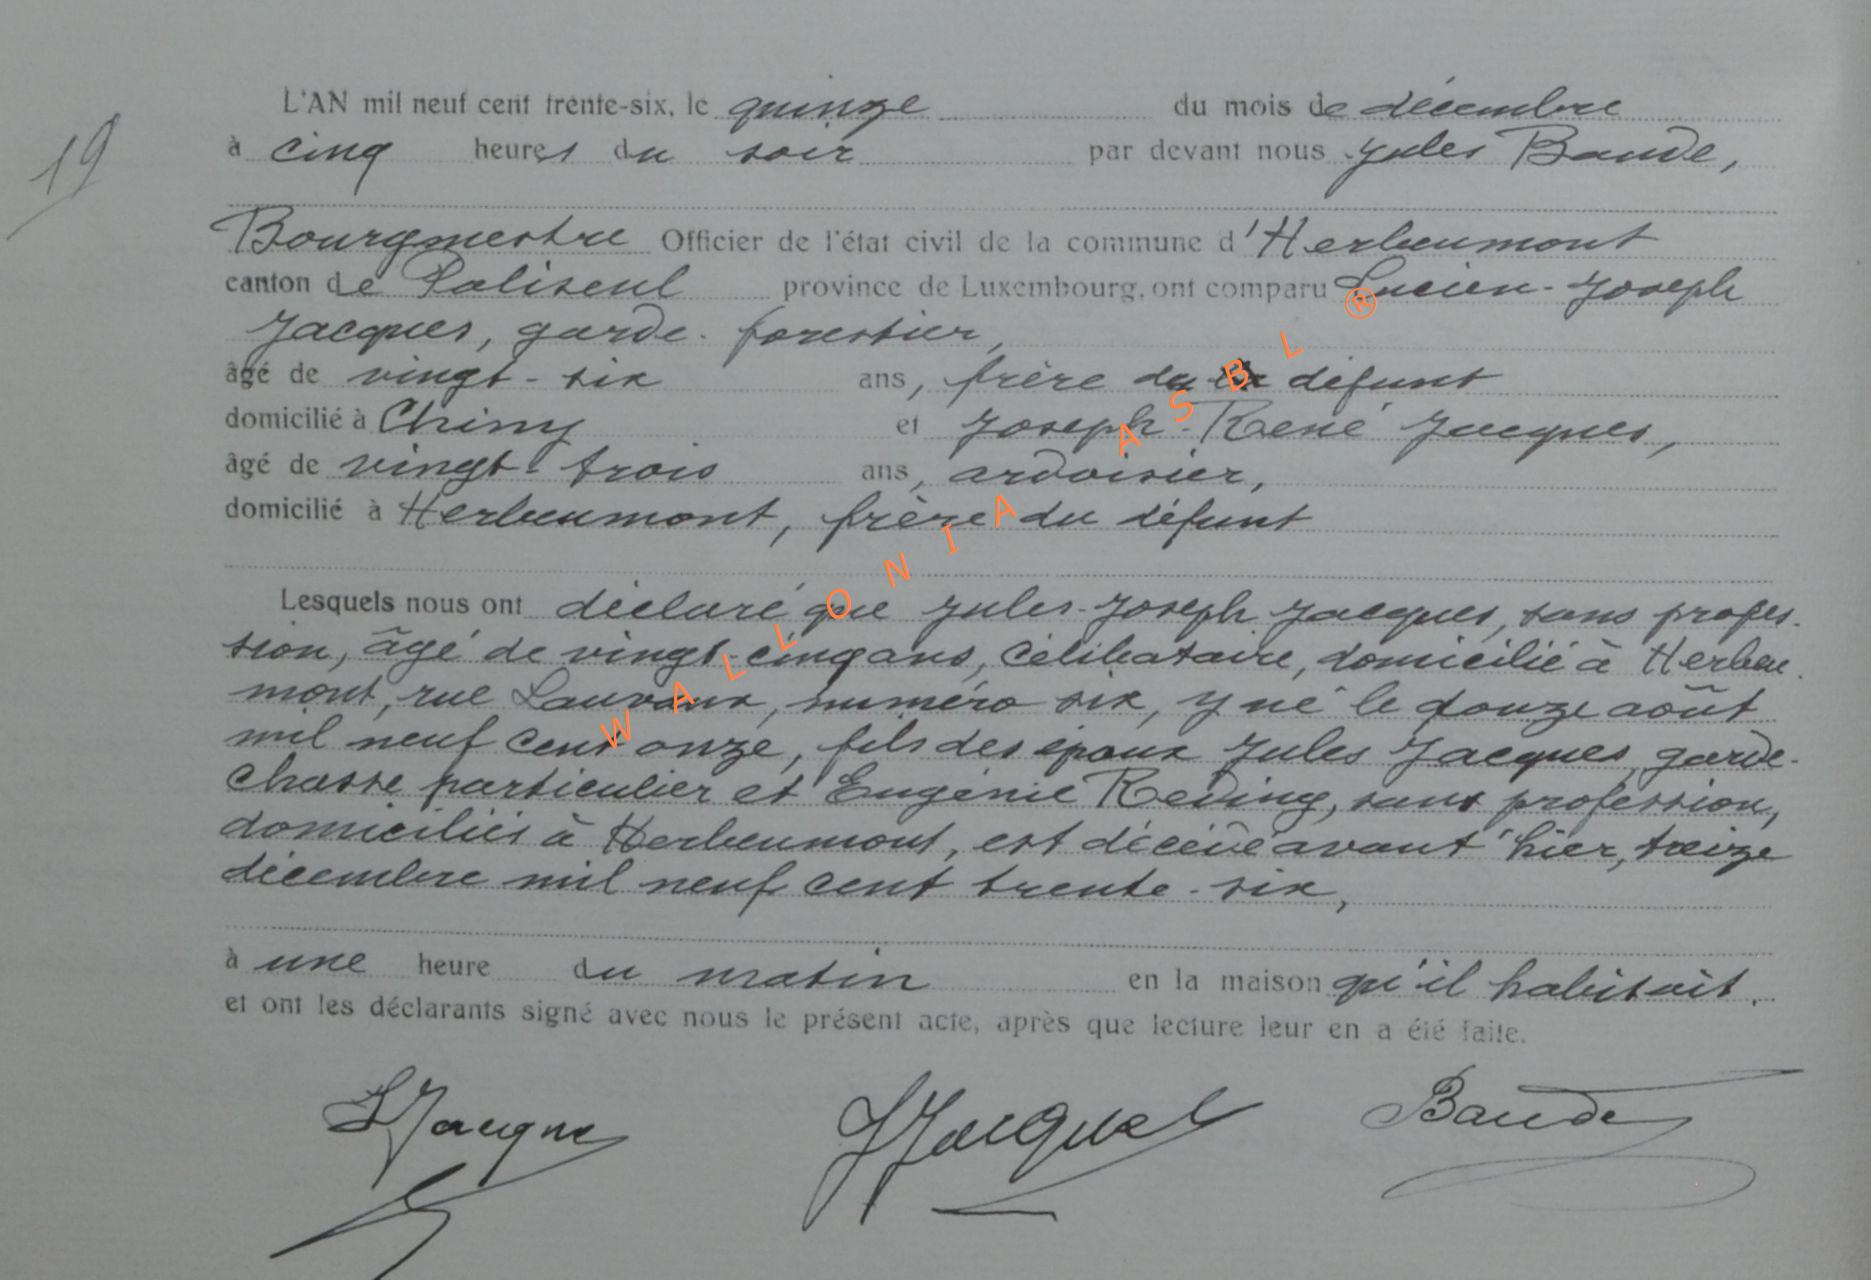 19
L'AN mil neuf cent trente-six, le quinze du mois de décembre
à cinq heures du soir par devant nous Jules Baude,
Bourgmestre Officier de l'état civil de la commune d'Herbeumont
canton de Paliseul province de Luxembourg, ont comparu Lucien-Joseph
Jacques, garde-forestier,
âgé de vingt-six ans, frère du défunt
domicilié à Chiny et Joseph-René Jacques,
âgé de vingt-trois ans, ardoisier,
domicilié à Herbeumont, frère du défunt
Lesquels nous ont déclaré que Jules-Joseph Jacques, sans profes-
sion, âgé de vingt-cinq ans, célibataire, domicilié à Herbeu-
mont, rue Lauvaux, numéro six, y né le douze août
mil neuf cent onze, fils des époux Jules Jacques, garde-
chasse particulier et Eugénie Reding, sans profession,
domiciliés à Herbeumont, est décédé avant-hier, treize
décembre mil neuf cent trente-six,
à une heure du matin en la maison qu'il habitait.
et ont les déclarants signé avec nous le présent acte, après que lecture leur en a été faite.
LJacques JJacques Baude
WALLONIA ASBL ®